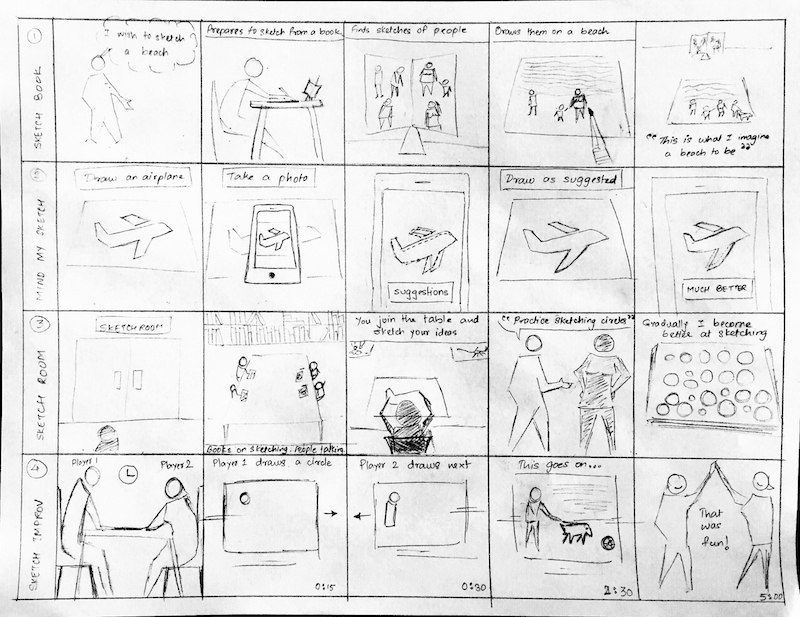 1
SKETCH BOOK
I wish to sketch
a beach
Prepares to sketch from a book
Finds sketches of people
Draws them on a beach
"This is what I imagine
a beach to be"
2
MIND MY SKETCH
Draw an airplane
Take a photo
suggestions
Draw as suggested
MUCH BETTER
3
SKETCH ROOM
SKETCH ROOM
Books on sketching. People talking.
You join the table and
sketch your ideas
"Practice sketching circles"
Gradually I become
better at sketching
4
SKETCH IMPROV
Player 1
Player 2
Player 1 draws a circle
0:15
Player 2 draws next
0:30
This goes on...
2:30
That
was
fun!
5:00